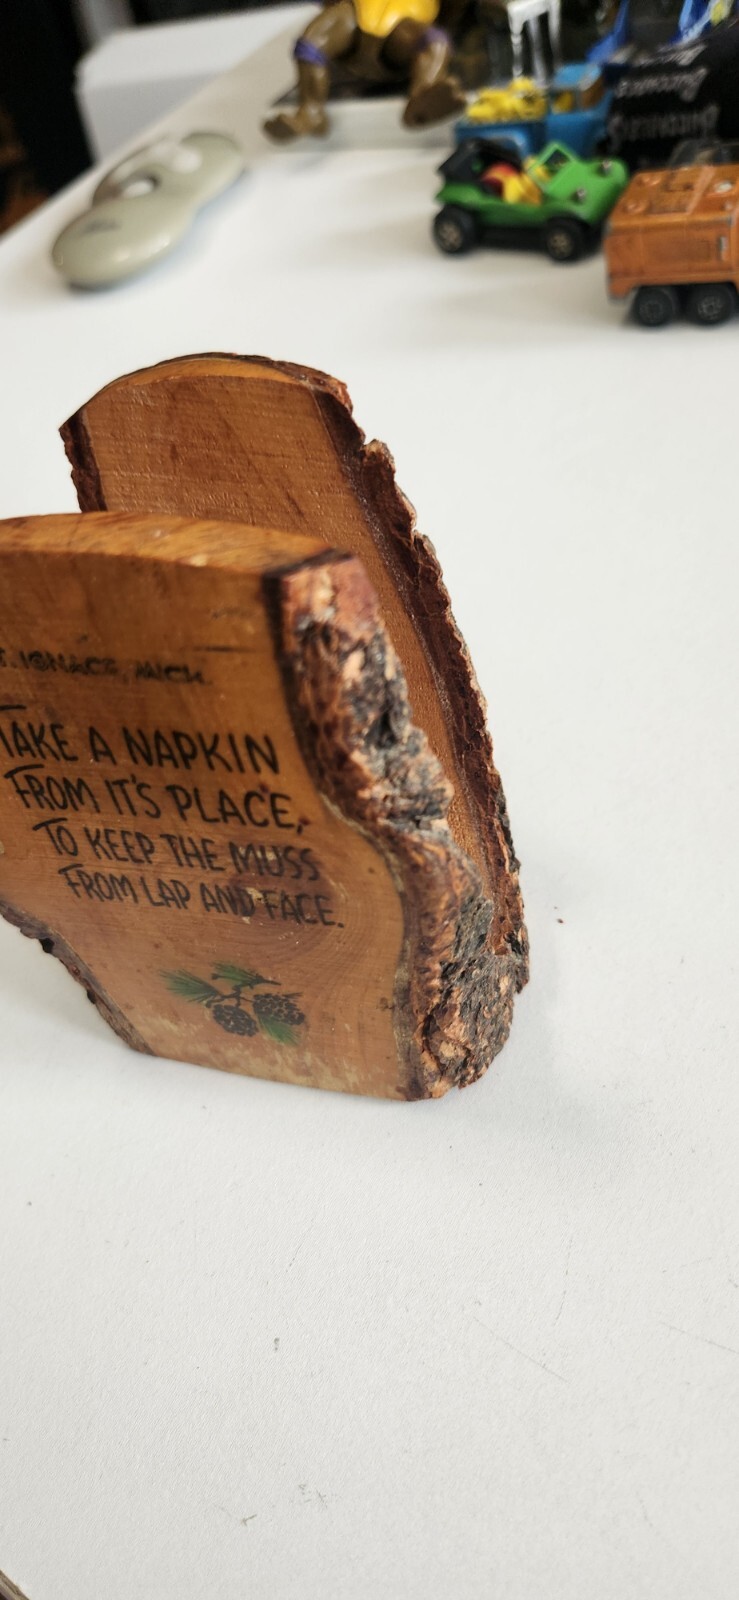 ST. IGNACE, MICH.
TAKE A NAPKIN
FROM IT'S PLACE,
TO KEEP THE MUSS
FROM LAP AND FACE.